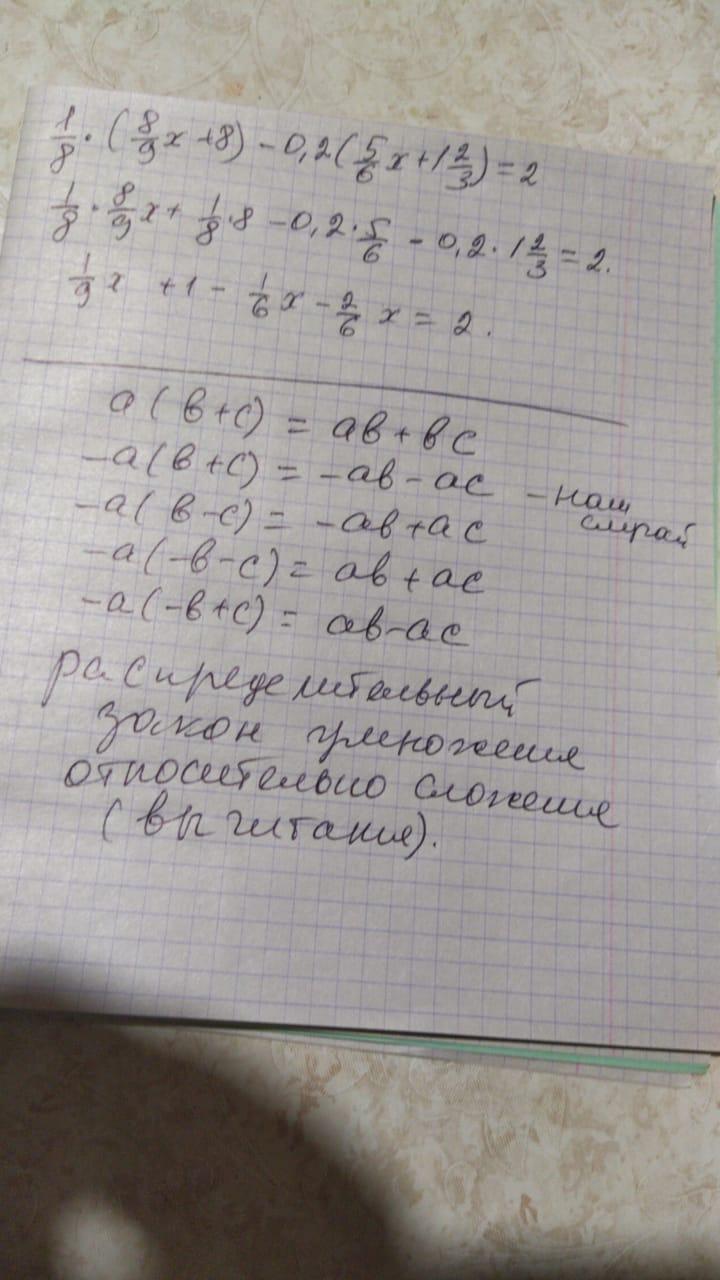 1/8 · (8/9 x + 8) - 0,2(5/6 x + 1 2/3) = 2
1/8 · 8/9 x + 1/8 · 8 - 0,2 · 5/6 - 0,2 · 1 2/3 = 2.
1/9 x + 1 - 1/6 x - 2/6 x = 2.
a(в+c) = aв+вc
-a(в+c) = -aв-ac - наш
случай
-a(в-c) = -aв+ac
-a(-в-c) = aв+ac
-a(-в+c) = aв-ac
распределительный
закон умножения
относительно сложения
(вычитания).